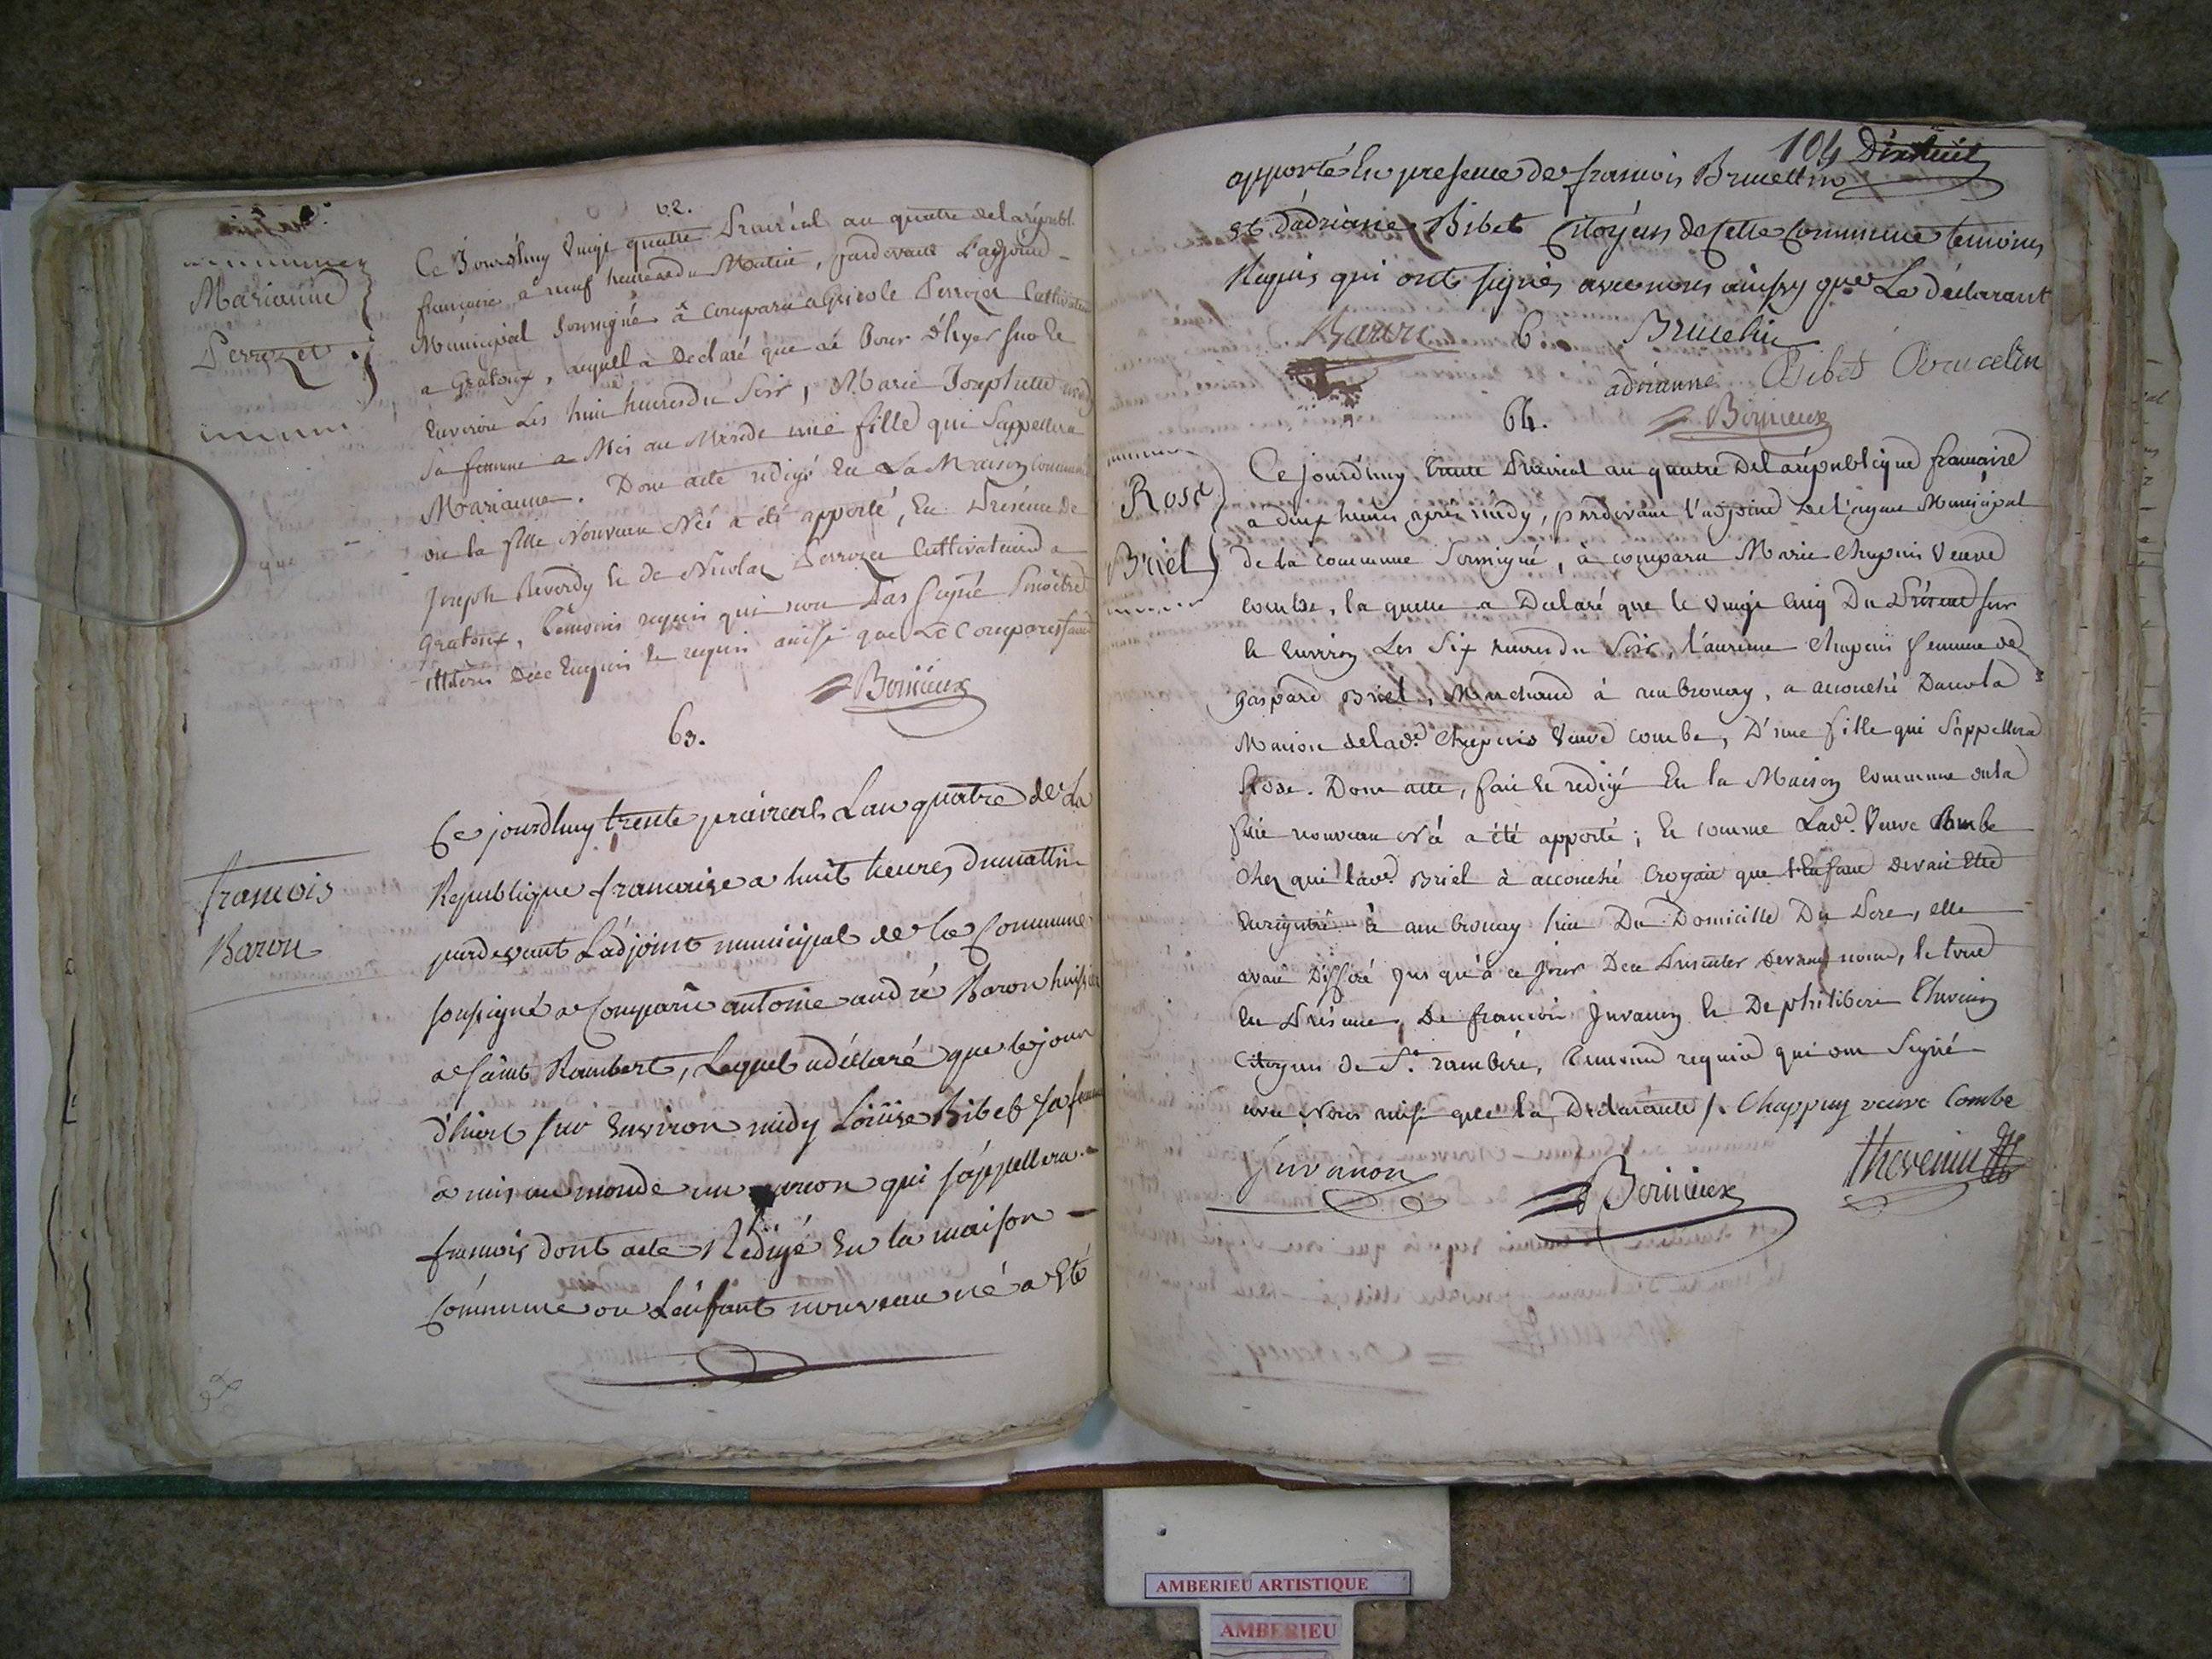 62.
Marianne
Perrozet
Ce Jourdhuy Vingt quatre Prairial an quatre de la républ.
francaise a neuf heures du Matin, pardevant L'adjoint
Municipal Soussigné à comparu agricole Perrozet Cultivateur
a Gratoux, lequel a Declaré que le Jour d'hyer sur le
Environ Les huit heures du Soir, Marie Josephte
Sa femme a Mis au Monde une fille qui S'appellera
Marianne. Dont acte redigé En La Maison Commune
ou la fille Nouveau Née a été apporté, En Présence De
Joseph Reverdy et de Nicolas Perrozet Cultivateurs a
Gratoux, témoins requis qui n'ont Pas Signé Pour être
illiterés De ce Enquis et requis ainsi que Le Comparessant
Bonieux
63.
francois
Baron
Ce jourdhuy trente prairial L'an quatre de La
Republique francaise a huit heures du mattin
pardevant L'adjoint municipal de la Commune
soussigné a Comparu antoine andré Baron huissier
a saint Rambert, Lequel a déclaré que le jour
d'hiert sur Environ midy Loüise Bibet sa femme
a mis au monde un garcon qui s'appellera
francois dont acte Rédigé En la maison
Commune ou L'enfant nouveau né a Eté
104 Dixhuit
apporté En presence de francois Brucellin
et d'adriane Bibet Citoyens de Cette Commune temoins
Requis qui ont signés avec nous ainsy que Le déclarant
Baron 6 Brucelin
adrianne Bibet Brucelin
Bonieux
64.
Rose
Briel
Ce jourd'huy trente Prairial an quatre De la républiqe francaise
a deux heures après midy, pardevant l'adjoint de l'agent Municipal
de la commune Soussigné, à comparu Marie Chapuis Veuve
Combe, la quelle a Declaré que le vingt cinq Du Présent sur
le Environ Les Six heures du Soir, Laurence Chapuis femme de
Gaspard Briel, Marchand à ambronay, a accouché Dans la
Maison de lad.e Chapuis Veuve Combe, D'une fille qui S'appellera
Rose. Dont acte, fait et redigé En la Maison Commune ou la
fille nouveau Né a été apporté; Et comme Lad.e Veuve Combe
Chez qui lad.e Briel à accouché Croyait que l'Enfant Devait Etre
Enregistré à ambronay lieu Du Domicille Du Pere, elle
avait Differé jusqu'à ce Jour De le Presenter Devant nous, le tout
En Présence, De francois Juvanon et De philibert Thevenin
Citoyens De S.t rambert, témoins requis qui ont Signé
avec Nous ainsi que la Déclarante /. Chappuy veuve Combe
Juvanon
Bonieux
thevenin
AMBERIEU ARTISTIQUE
AMBERIEU